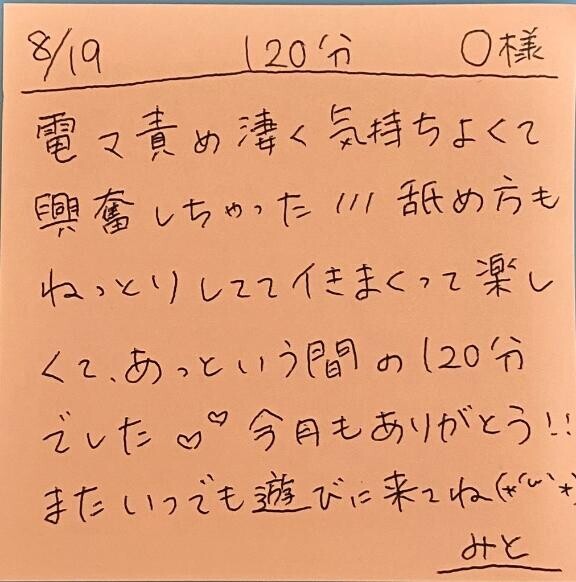 8/19 120分 〇様
電マ責め凄く気持ちよくて
興奮しちゃった /// 舐め方も
ねっとりしててイきまくって楽し
くて、あっという間の120分
でした♡♡今月もありがとう!!
またいつでも遊びに来てね(*´ω`*)
みと